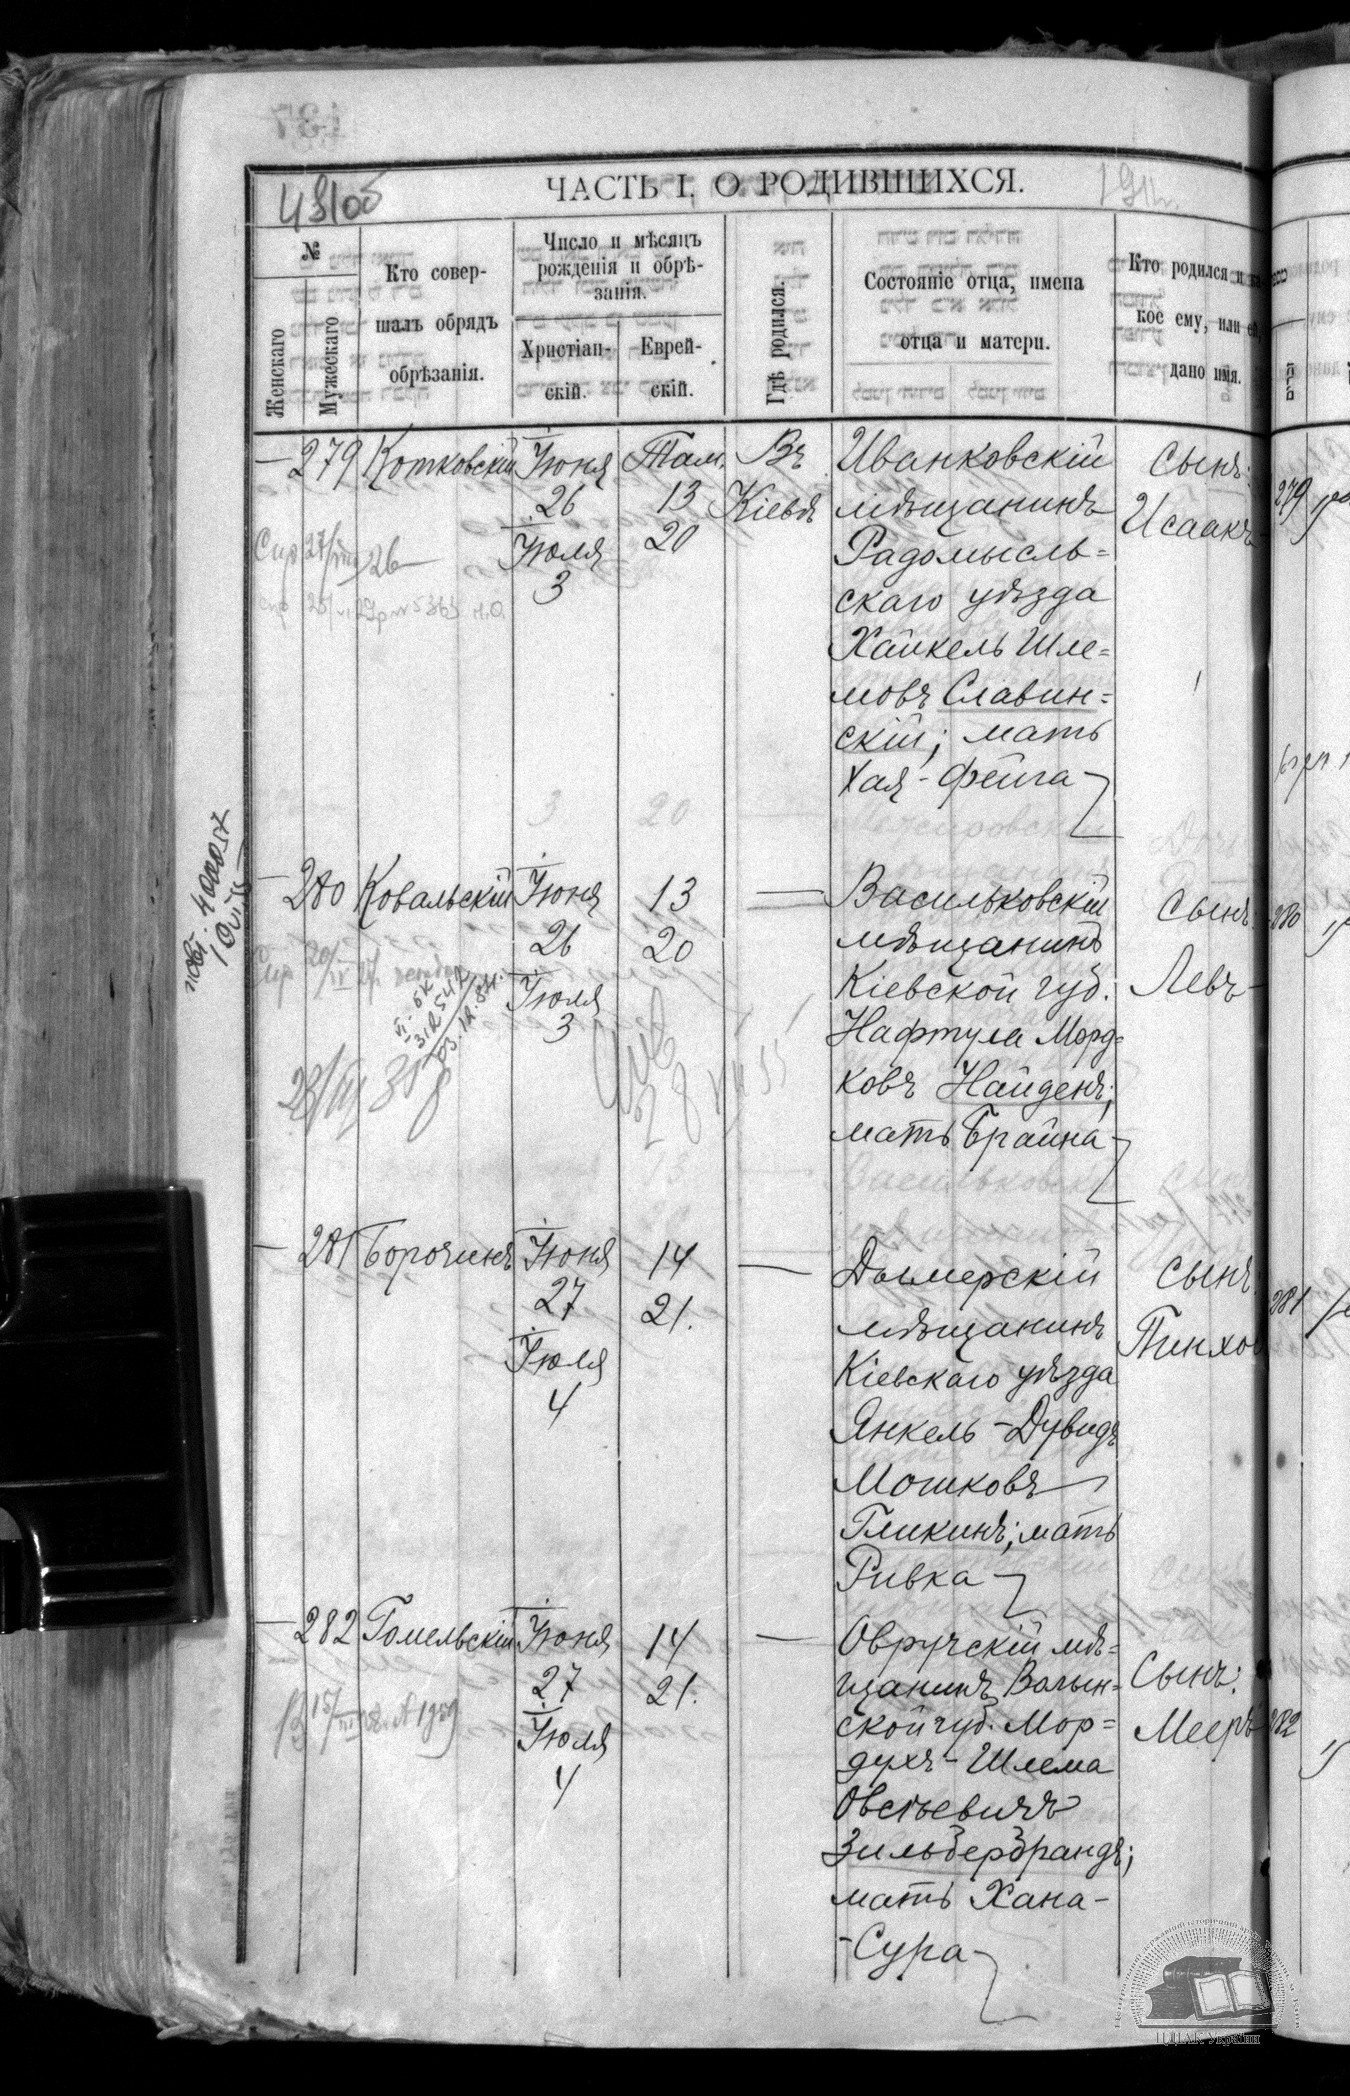 ЧАСТЬ I, О РОДИВШИХСЯ.
№
Женскаго
Мужескаго
Кто совер-
шалъ обрядъ
обрѣзанія.
Число и мѣсяцъ
рожденія и обрѣ-
занія.
Христіан-
скій.
Еврей-
скій.
Гдѣ родился.
Состояніе отца, имена
отца и матери.
Кто родился и ка-
кое ему, или ей,
дано имя.
— 279 Котковскій Іюня 26 Іюля 3
Там. 13 20
Въ Кіевѣ
Иванковскій
мѣщанинъ
Радомысль=
скаго уѣзда
Хайкель Шле=
мовъ Славин=
скій; мать
Хая-Фейга
Сынъ:
Исаакъ
279
— 280 Ковальскій Іюня 26 Іюля 3
13 20
—
Васильковскій
мѣщанинъ
Кіевской губ.
Нафтула Морд=
ковъ Найденъ;
мать Брайна
Сынъ
Левъ
280
— 281 Борочинъ Іюня 27 Іюля 4
14 21.
—
Дымерскій
мѣщанинъ
Кіевскаго уѣзда
Янкель-Дувидъ
Мошковъ
Гликинъ; мать
Ривка
Сынъ
Пинхос
281
— 282 Гомельскій Іюня 27 Іюля 4
14 21.
—
Овручскій мѣ=
щанинъ Волын=
ской губ. Мор=
духъ-Шлема
Овсѣевичъ
Зильбербрандъ;
мать Хана-
-Сура
Сынъ:
Мееръ
282
ЦДІАК України